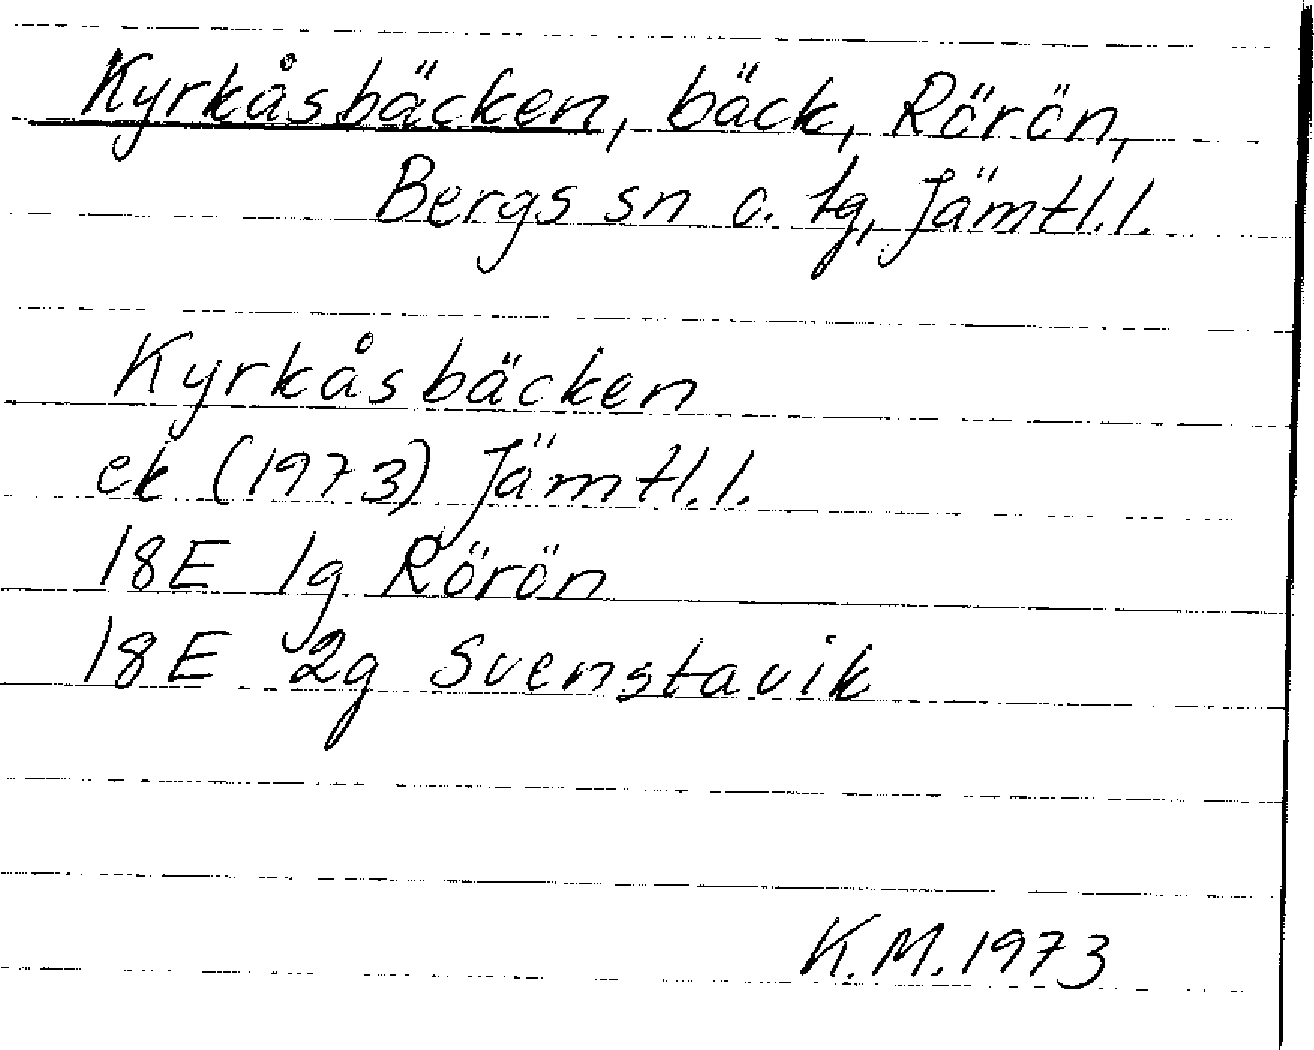 Kyrkåsbäcken, bäck, Rörön,
Bergs sn o. tg, Jämtl.l.
Kyrkåsbäcken
ek (1973) Jämtl.l.
18E 1g Rörön
18E 2g Svenstavik
K.M.1973